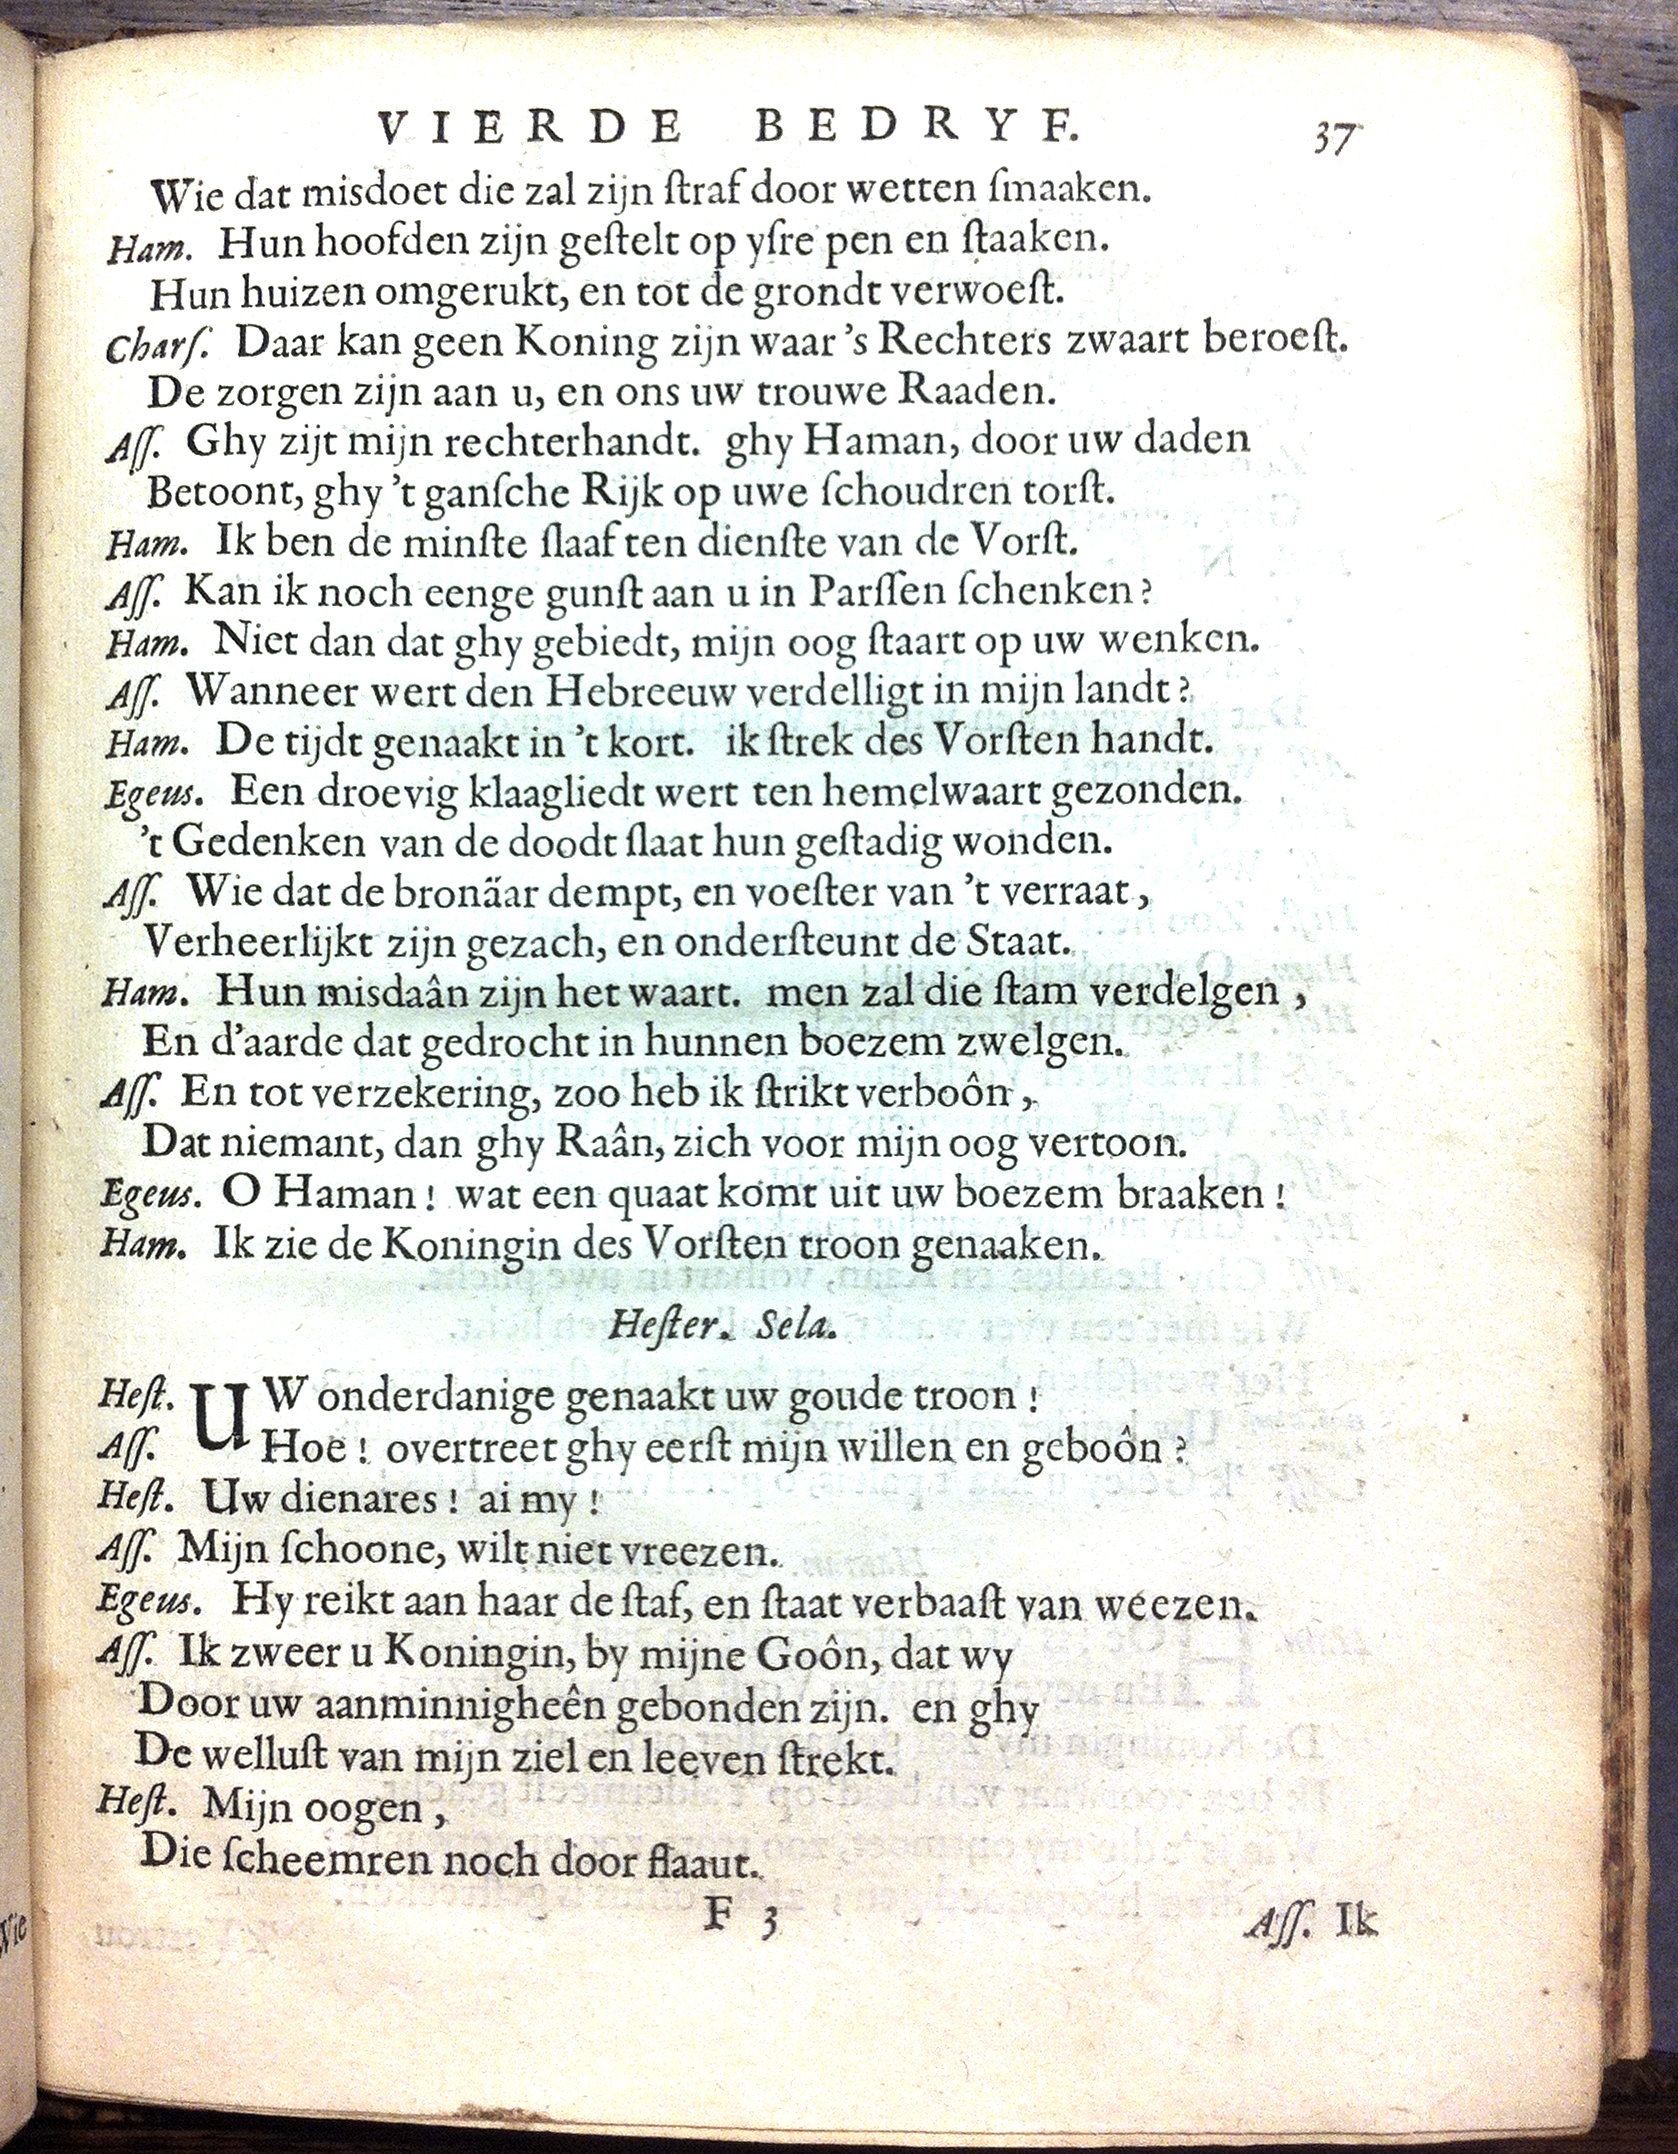 VIERDE BEDRYF. 37
Wie dat misdoet die zal zijn ſtraf door wetten ſmaaken.
Ham. Hun hoofden zijn geſtelt op yſre pen en ſtaaken.
Hun huizen omgerukt, en tot de grondt verwoeſt.
Charſ. Daar kan geen Koning zijn waar 's Rechters zwaart beroeſt.
De zorgen zijn aan u, en ons uw trouwe Raaden.
Aſſ. Ghy zijt mijn rechterhandt. ghy Haman, door uw daden
Betoont, ghy 't ganſche Rijk op uwe ſchoudren torſt.
Ham. Ik ben de minſte ſlaaf ten dienſte van de Vorſt.
Aſſ. Kan ik noch eenge gunſt aan u in Parſſen ſchenken?
Ham. Niet dan dat ghy gebiedt, mijn oog ſtaart op uw wenken.
Aſſ. Wanneer wert den Hebreeuw verdelligt in mijn landt?
Ham. De tijdt genaakt in 't kort. ik ſtrek des Vorſten handt.
Egeus. Een droevig klaagliedt wert ten hemelwaart gezonden.
't Gedenken van de doodt ſlaat hun geſtadig wonden.
Aſſ. Wie dat de bronäar dempt, en voeſter van 't verraat,
Verheerlijkt zijn gezach, en onderſteunt de Staat.
Ham. Hun misdaân zijn het waart. men zal die ſtam verdelgen,
En d'aarde dat gedrocht in hunnen boezem zwelgen.
Aſſ. En tot verzekering, zoo heb ik ſtrikt verboôn,
Dat niemant, dan ghy Raân, zich voor mijn oog vertoon.
Egeus. O Haman! wat een quaat komt uit uw boezem braaken!
Ham. Ik zie de Koningin des Vorſten troon genaaken.
Heſter. Sela.
Heſt. UW onderdanige genaakt uw goude troon!
Aſſ. Hoe! overtreet ghy eerſt mijn willen en geboôn?
Heſt. Uw dienares! ai my!
Aſſ. Mijn ſchoone, wilt niet vreezen.
Egeus. Hy reikt aan haar de ſtaf, en ſtaat verbaaſt van weezen.
Aſſ. Ik zweer u Koningin, by mijne Goôn, dat wy
Door uw aanminnigheên gebonden zijn. en ghy
De welluſt van mijn ziel en leeven ſtrekt.
Heſt. Mijn oogen,
Die ſcheemren noch door flaaut.
F 3 Aſſ. Ik